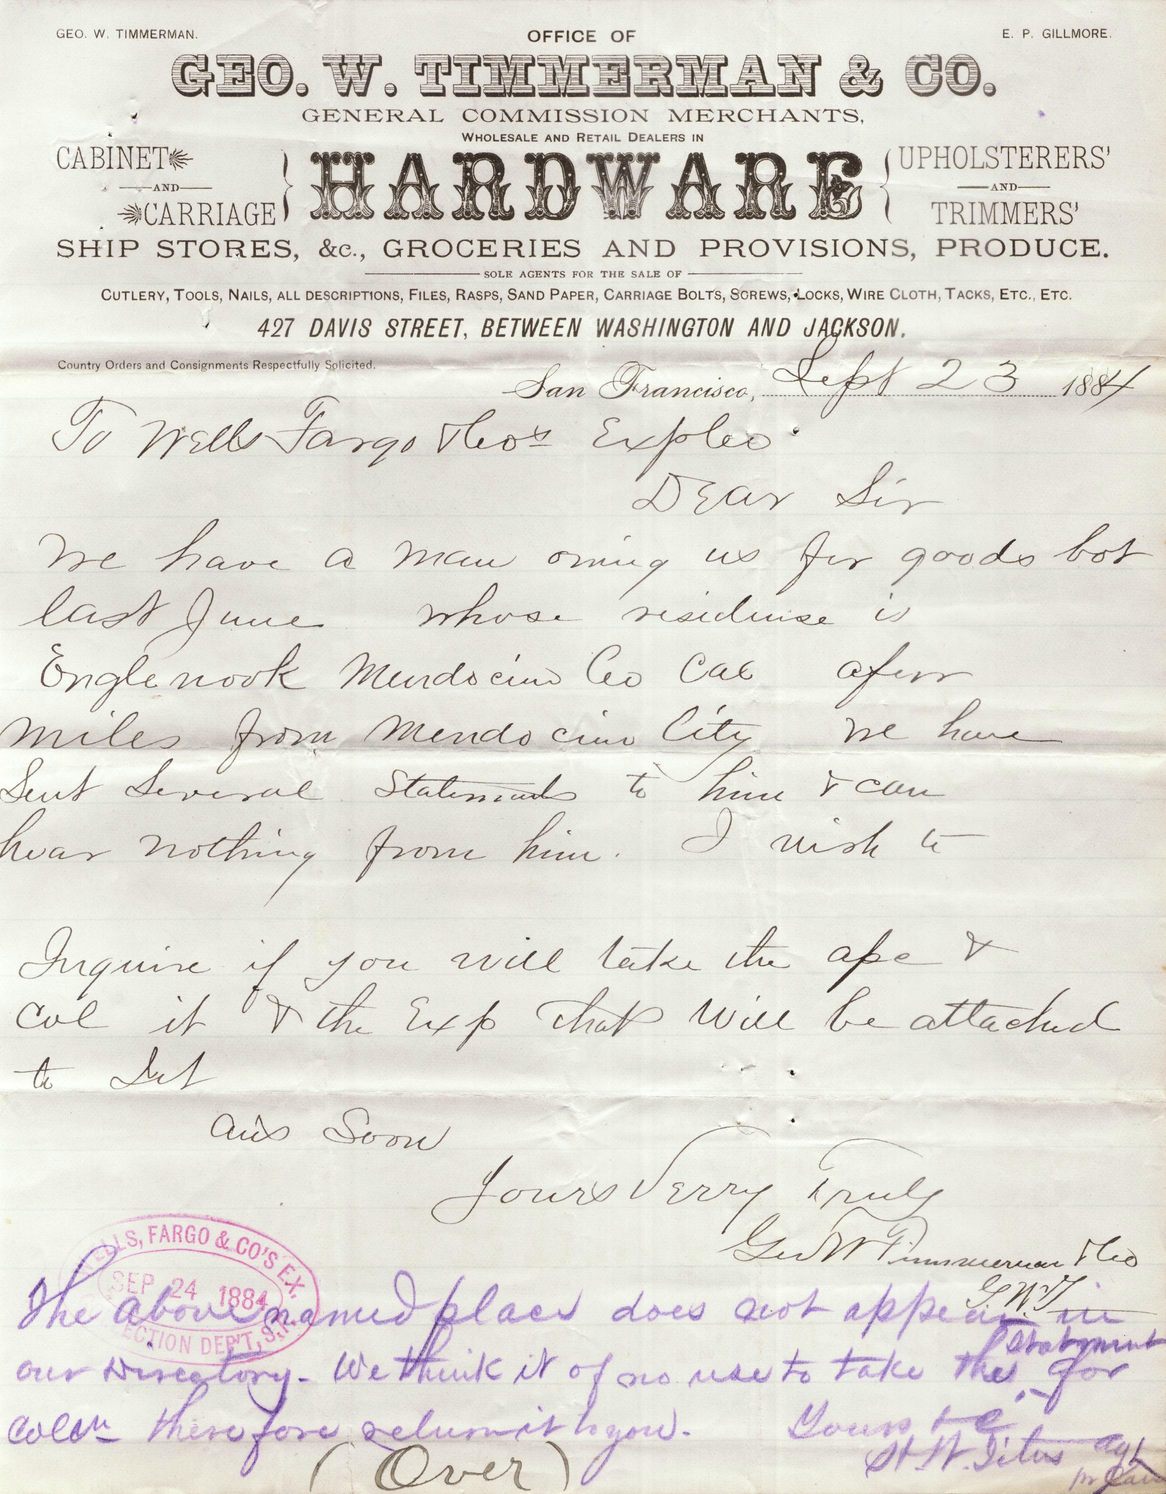 GEO. W. TIMMERMAN.
OFFICE OF
E. P. GILLMORE.
GEO. W. TIMMERMAN & CO.
GENERAL COMMISSION MERCHANTS,
WHOLESALE AND RETAIL DEALERS IN
CABINET
AND
CARRIAGE
HARDWARE
UPHOLSTERERS'
AND
TRIMMERS'
SHIP STORES, &c., GROCERIES AND PROVISIONS, PRODUCE.
SOLE AGENTS FOR THE SALE OF
CUTLERY, TOOLS, NAILS, ALL DESCRIPTIONS, FILES, RASPS, SAND PAPER, CARRIAGE BOLTS, SCREWS, LOCKS, WIRE CLOTH, TACKS, ETC., ETC.
427 DAVIS STREET, BETWEEN WASHINGTON AND JACKSON.
Country Orders and Consignments Respectfully Solicited.
San Francisco, Sept 23 1884
To Wells Fargo & Cos Exp Co
Dear Sir
We have a man owing us for goods bot
last June whose residense is
Englenook Mendocino Co Cal a few
miles from Mendocino City We have
Sent Several Statements to him & can
hear nothing from him. I wish to
Inquire if you will take the a/c &
Col it & the Exp that will be attached
to It
ans Soon
Yours Verry Truly
Geo W Timmerman & Co
G.W.T
WELLS, FARGO & CO'S EX.
SEP 24 1884
COLLECTION DEP'T, S.F.
The above named place does not appear in
our Directory - We think it of no use to take this statement for
colcn therefore return it to you.
Yours &c
H. W. Titus agt
(Over)